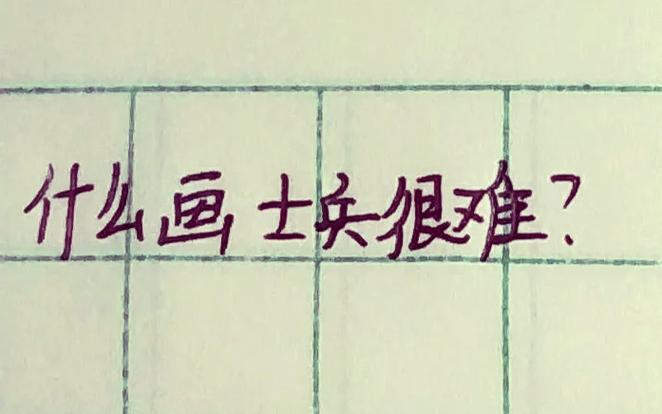 什么画士兵很难?